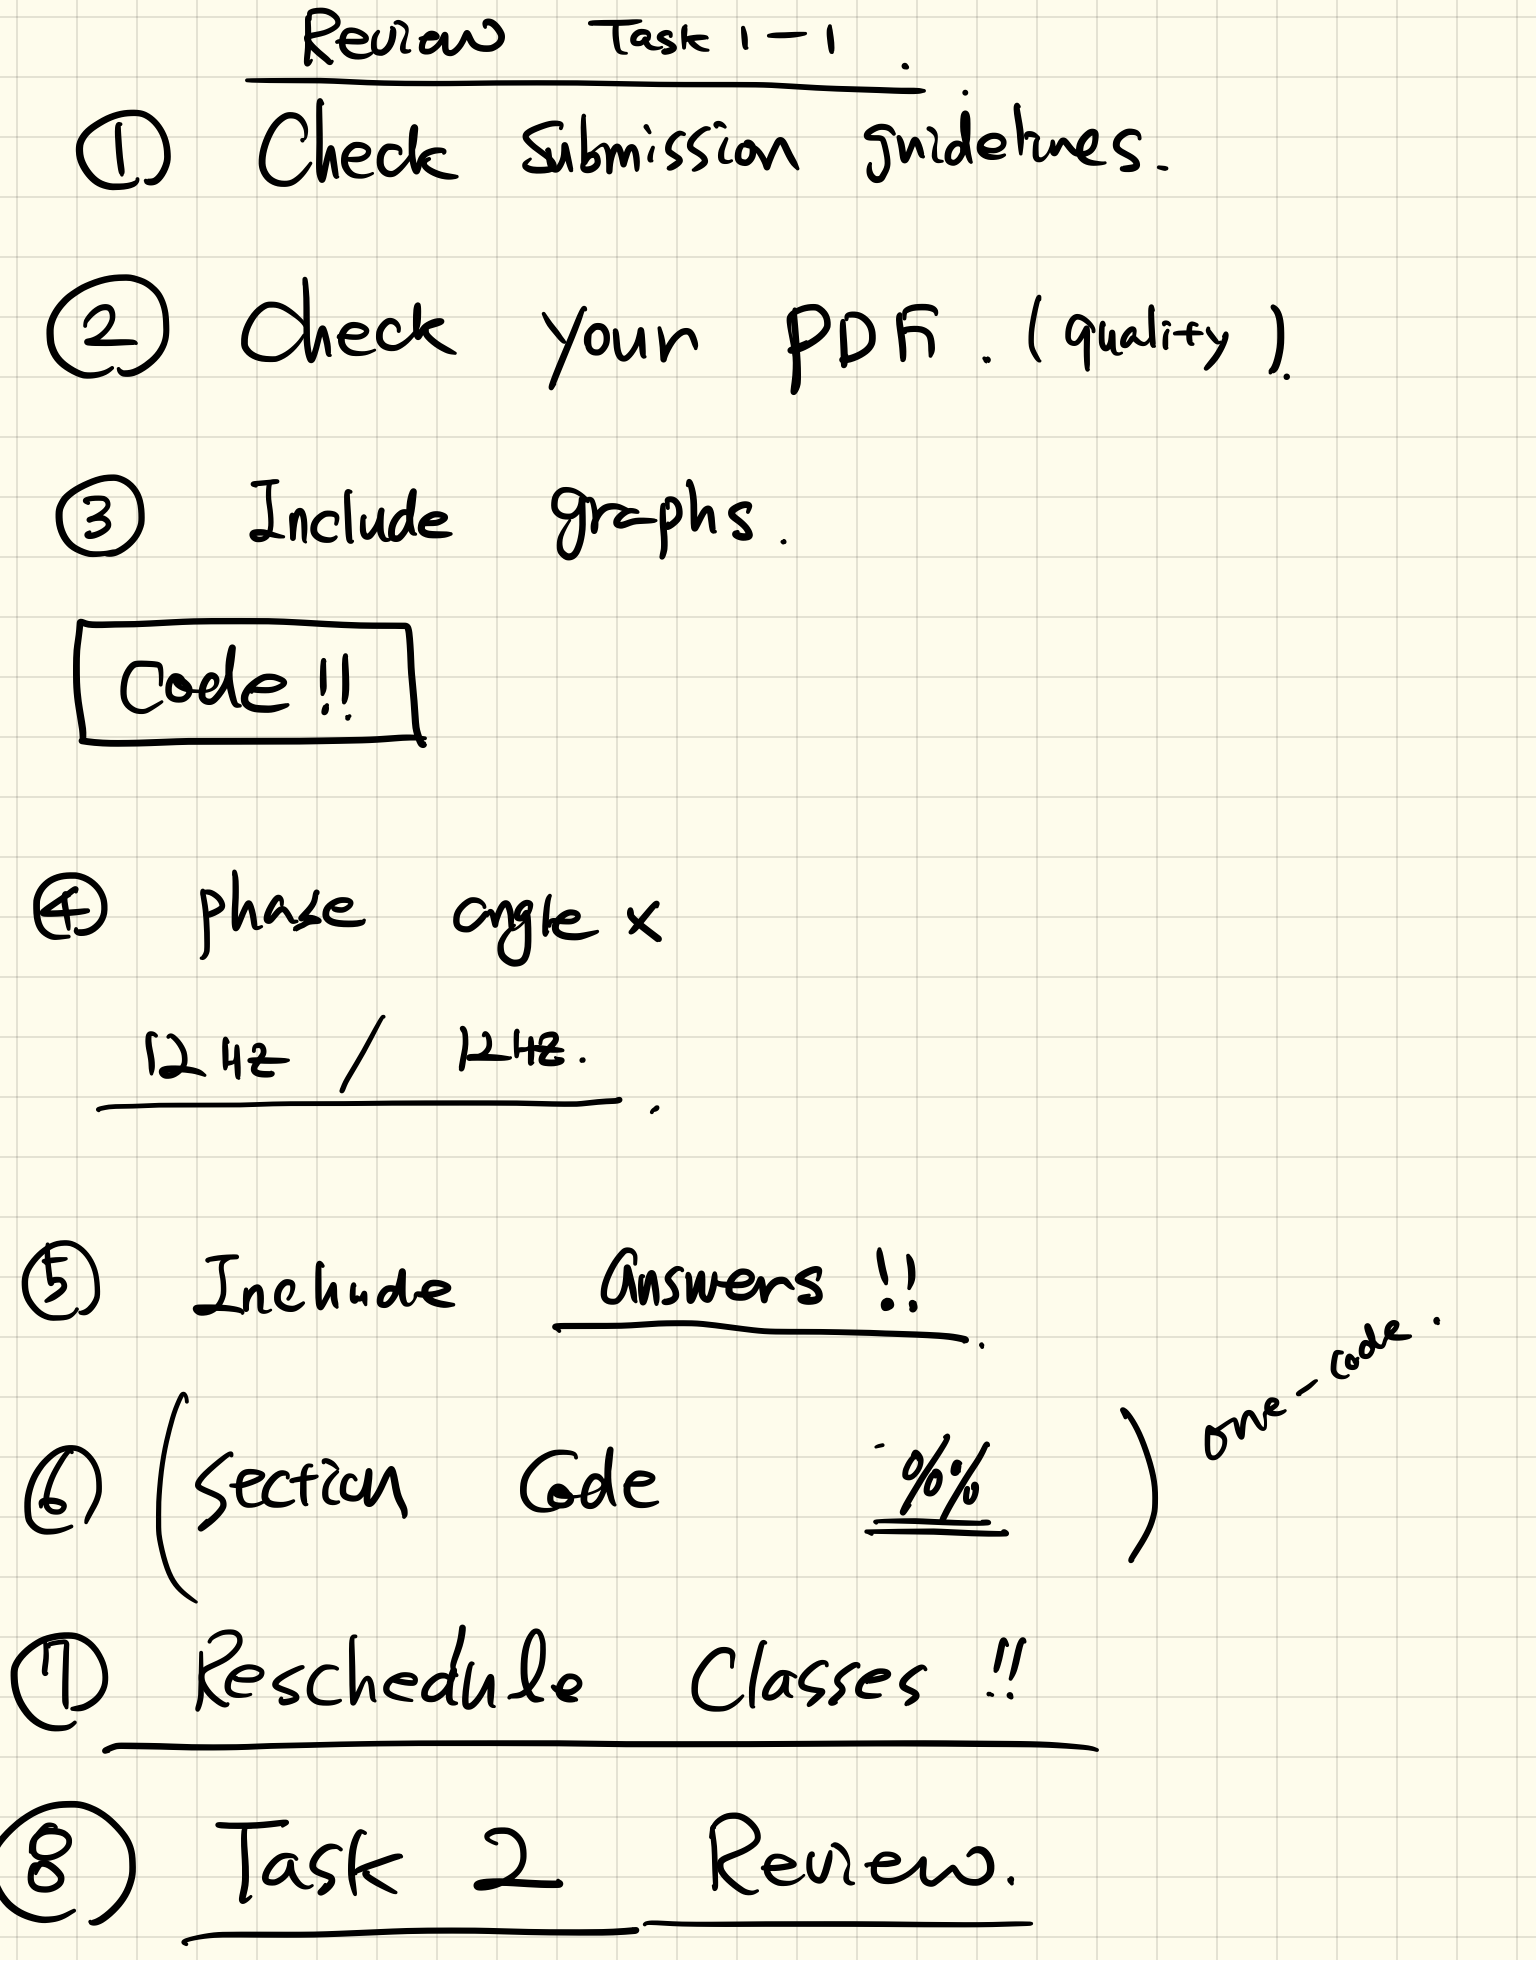 Review Task 1-1.
① Check Submission guidelines.
② Check your PDF. (quality).
③ Include graphs.
Code!!
④ phase angle x
12 Hz / 12 Hz.
⑤ Include Answers!!
one-code.
⑥ (Section Code %%)
⑦ Reschedule Classes!!
⑧ Task 2 Review.